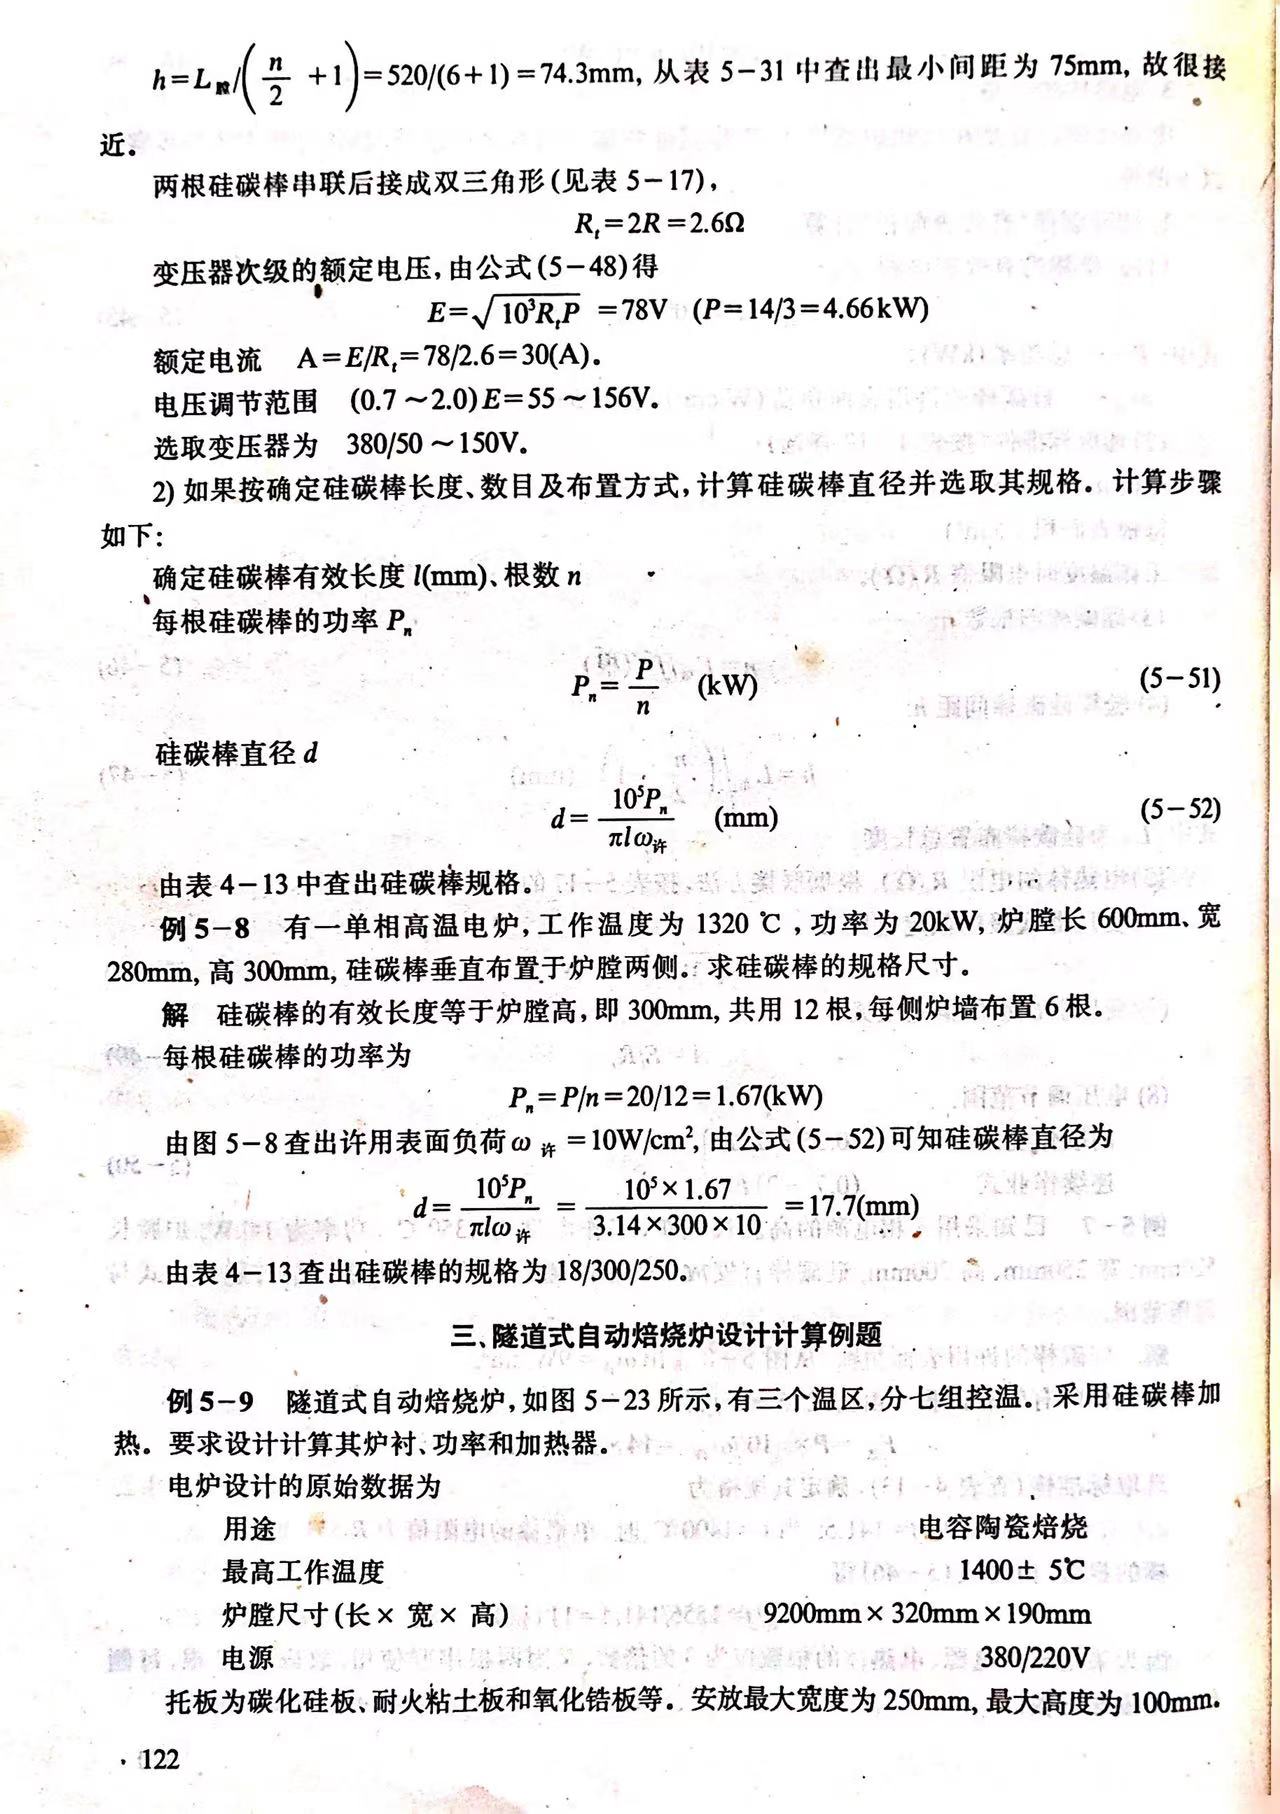 h=L膛/(n/2 +1)=520/(6+1)=74.3mm, 从表 5-31 中查出最小间距为 75mm, 故很接
近。
两根硅碳棒串联后接成双三角形(见表 5-17),
Rt=2R=2.6Ω
变压器次级的额定电压,由公式(5-48)得
E=√(10³RtP) =78V (P=14/3=4.66kW)
额定电流 A=E/Rt=78/2.6=30(A)。
电压调节范围 (0.7~2.0)E=55~156V。
选取变压器为 380/50~150V。
2) 如果按确定硅碳棒长度、数目及布置方式,计算硅碳棒直径并选取其规格。计算步骤
如下:
确定硅碳棒有效长度 l(mm)、根数 n
每根硅碳棒的功率 Pn
Pn= P/n (kW) (5-51)
硅碳棒直径 d
d= 10⁵Pn/πlω许 (mm) (5-52)
由表 4-13 中查出硅碳棒规格。
例 5-8 有一单相高温电炉,工作温度为 1320 ℃,功率为 20kW, 炉膛长 600mm、宽
280mm, 高 300mm, 硅碳棒垂直布置于炉膛两侧。求硅碳棒的规格尺寸。
解 硅碳棒的有效长度等于炉膛高,即 300mm, 共用 12 根,每侧炉墙布置 6 根。
每根硅碳棒的功率为
Pn=P/n=20/12=1.67(kW)
由图 5-8 查出许用表面负荷 ω许 =10W/cm², 由公式(5-52)可知硅碳棒直径为
d= 10⁵Pn/πlω许 = 10⁵×1.67/3.14×300×10 =17.7(mm)
由表 4-13 查出硅碳棒的规格为 18/300/250。
三、隧道式自动焙烧炉设计计算例题
例 5-9 隧道式自动焙烧炉,如图 5-23 所示,有三个温区,分七组控温。采用硅碳棒加
热。要求设计计算其炉衬、功率和加热器。
电炉设计的原始数据为
用途 电容陶瓷焙烧
最高工作温度 1400± 5℃
炉膛尺寸(长× 宽× 高) 9200mm×320mm×190mm
电源 380/220V
托板为碳化硅板、耐火粘土板和氧化锆板等。安放最大宽度为 250mm, 最大高度为 100mm。
· 122